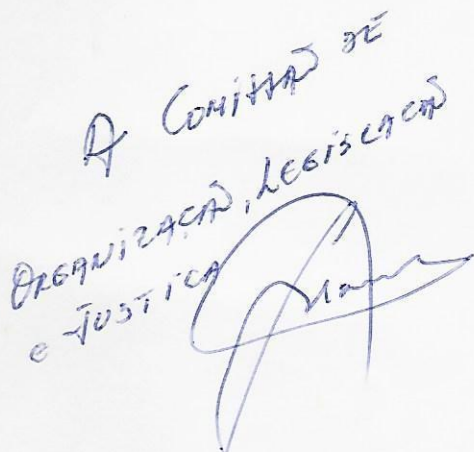 A COMISSÃO DE
ORGANIZAÇÃO, LEGISLAÇÃO
e JUSTIÇA